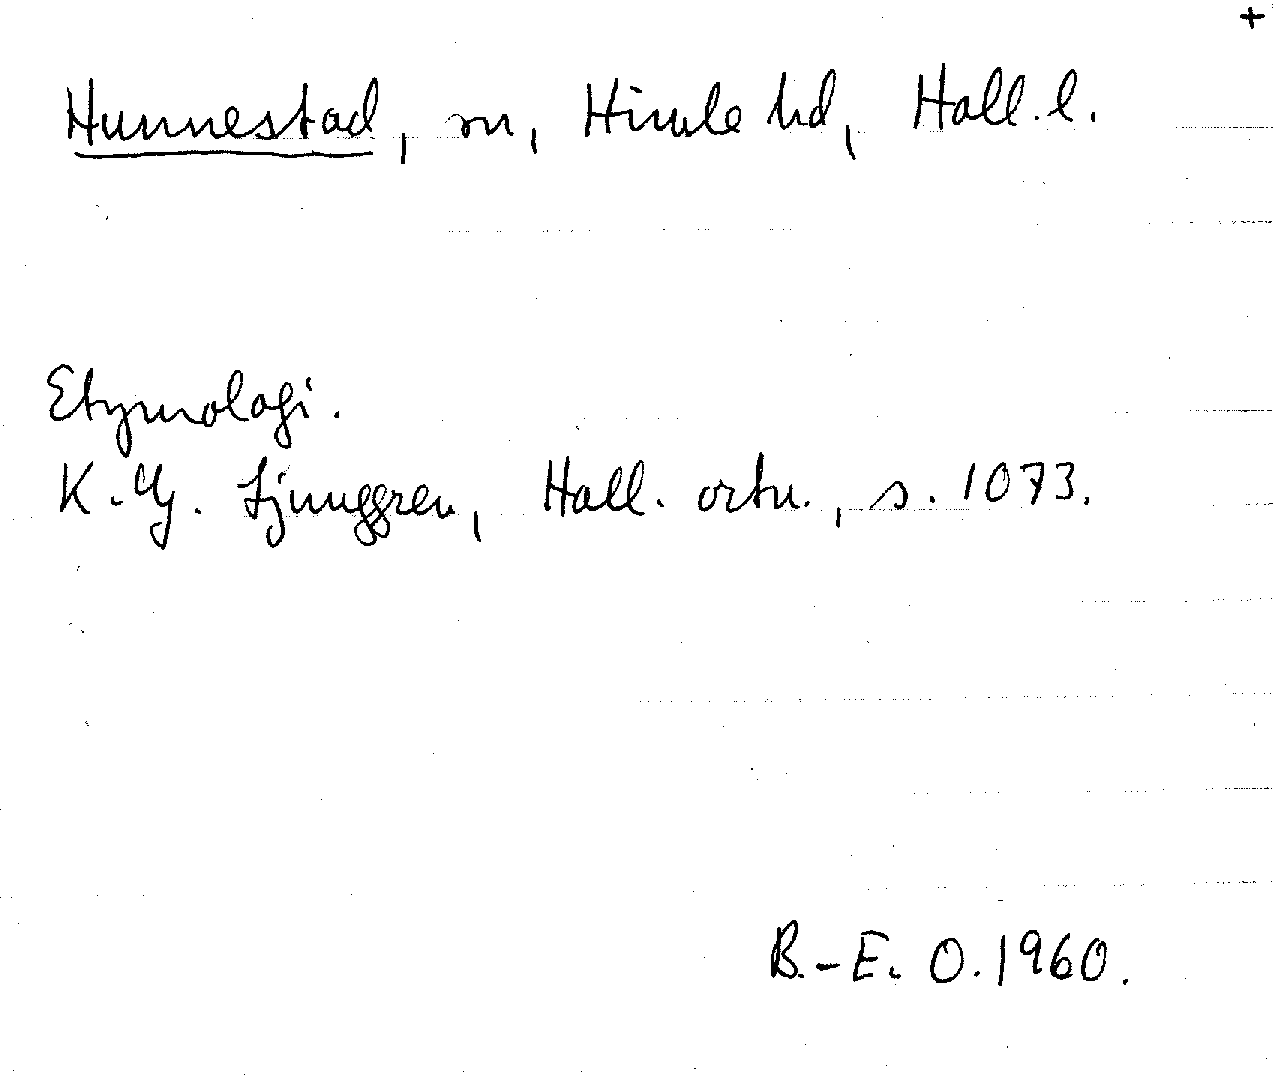 +
Hunnestad, sn, Himle hd, Hall. l.
Etymologi.
K.-G. Ljunggren, Hall. ortn., s. 1073.
B.-E. O. 1960.